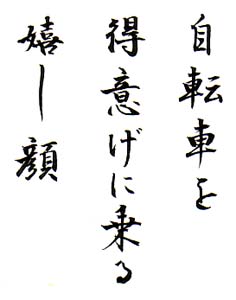 自転車を
得意げに乗る
嬉し顔